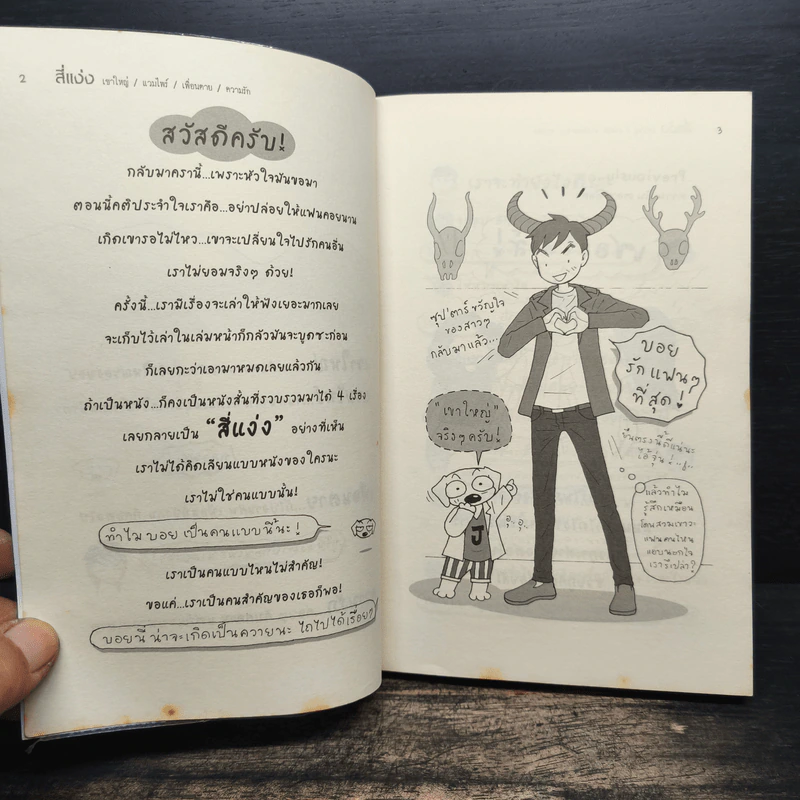 2 สี่แง่ง เขาใหญ่ / แวมไพร์ / เพื่อนตาย / ความรัก
สวัสดีครับ!
กลับมาครานี้...เพราะหัวใจมันขอมา
ตอนนี้คติประจำใจเราคือ...อย่าปล่อยให้แฟนคอยนาน
เกิดเขารอไม่ไหว...เขาจะเปลี่ยนใจไปรักคนอื่น
เราไม่ยอมจริงๆ ด้วย!
ครั้งนี้...เรามีเรื่องจะเล่าให้ฟังเยอะมากเลย
จะเก็บไว้เล่าในเล่มหน้าก็กลัวมันจะบูดซะก่อน
ก็เลยกะว่าเอามาหมดเลยแล้วกัน
ถ้าเป็นหนัง...ก็คงเป็นหนังสั้นที่รวบรวมมาได้ 4 เรื่อง
เลยกลายเป็น "สี่แง่ง" อย่างที่เห็น
เราไม่ได้คิดเลียนแบบหนังของใครนะ
เราไม่ใช่คนแบบนั้น!
ทำไม บอย เป็นคนแบบนี้นะ!
เราเป็นคนแบบไหนไม่สำคัญ!
ขอแค่...เราเป็นคนสำคัญของเธอก็พอ!
บอยนี่ น่าจะเกิดเป็นควายนะ ไถไปได้เรื่อยๆ
3
ซุป'ตาร์ ขวัญใจ
ของสาวๆ
กลับมาแล้ว...
บอย
รักแฟนๆ
ที่สุด!
"เขาใหญ่"
จริงๆ ครับ!
J
ยืนตรงนี้ดีแน่นะ
ไอ้จุ่น!
แล้วทำไม
รู้สึกเหมือน
โดนสวมเขาวะ
แฟนคนไหน
แอบนอกใจ
เรารึเปล่า?